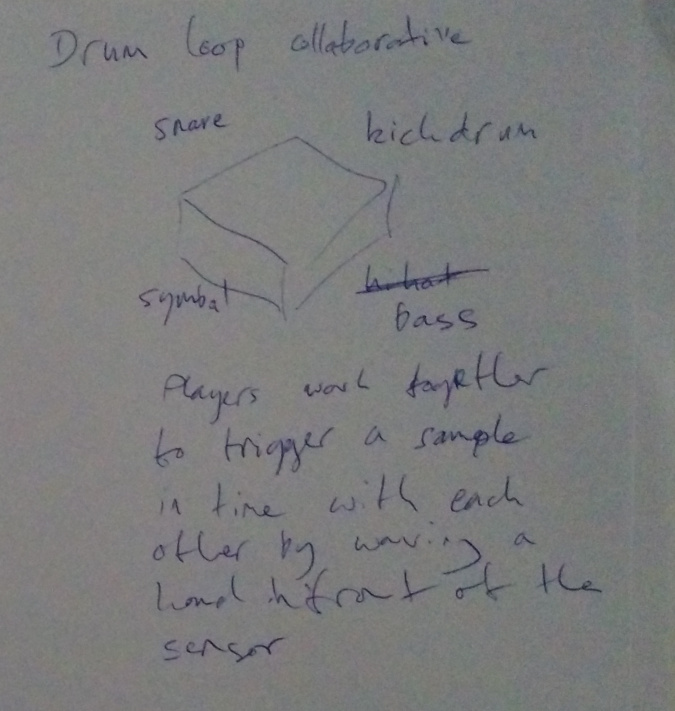 Drum loop collaborative
snare
kickdrum
symbal
hihat
bass
Players work together
to trigger a sample
in time with each
other by waving a
hand infront of the
sensor